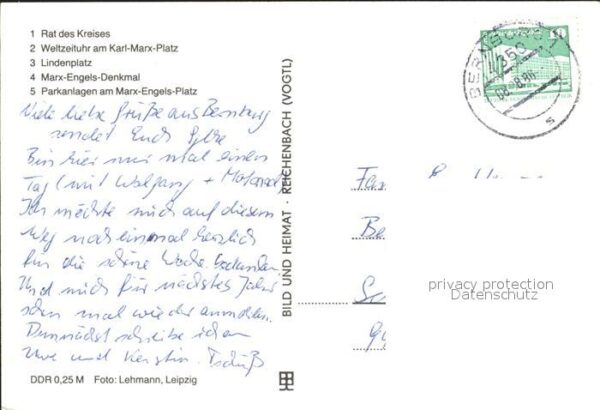 1 Rat des Kreises
2 Weltzeituhr am Karl-Marx-Platz
3 Lindenplatz
4 Marx-Engels-Denkmal
5 Parkanlagen am Marx-Engels-Platz
Viele liebe Grüße aus Bernburg
sendet Euch Silke
Bin hier nur mal einen
Tag (mit Wolfgang + Motorrad)
Ich möchte mich auf diesem
Weg noch einmal herzlich
für die schöne Woche bedanken
Und mich für nächstes Jahr
schon mal wieder anmelden.
Demnächst schreibe ich an
Uwe und Kerstin. Tschüß
DDR 0,25 M Foto: Lehmann, Leipzig
BILD UND HEIMAT · REICHENBACH (VOGTL)
BERNBURG 1
4350
10
Fam
Be
privacy protection
Datenschutz